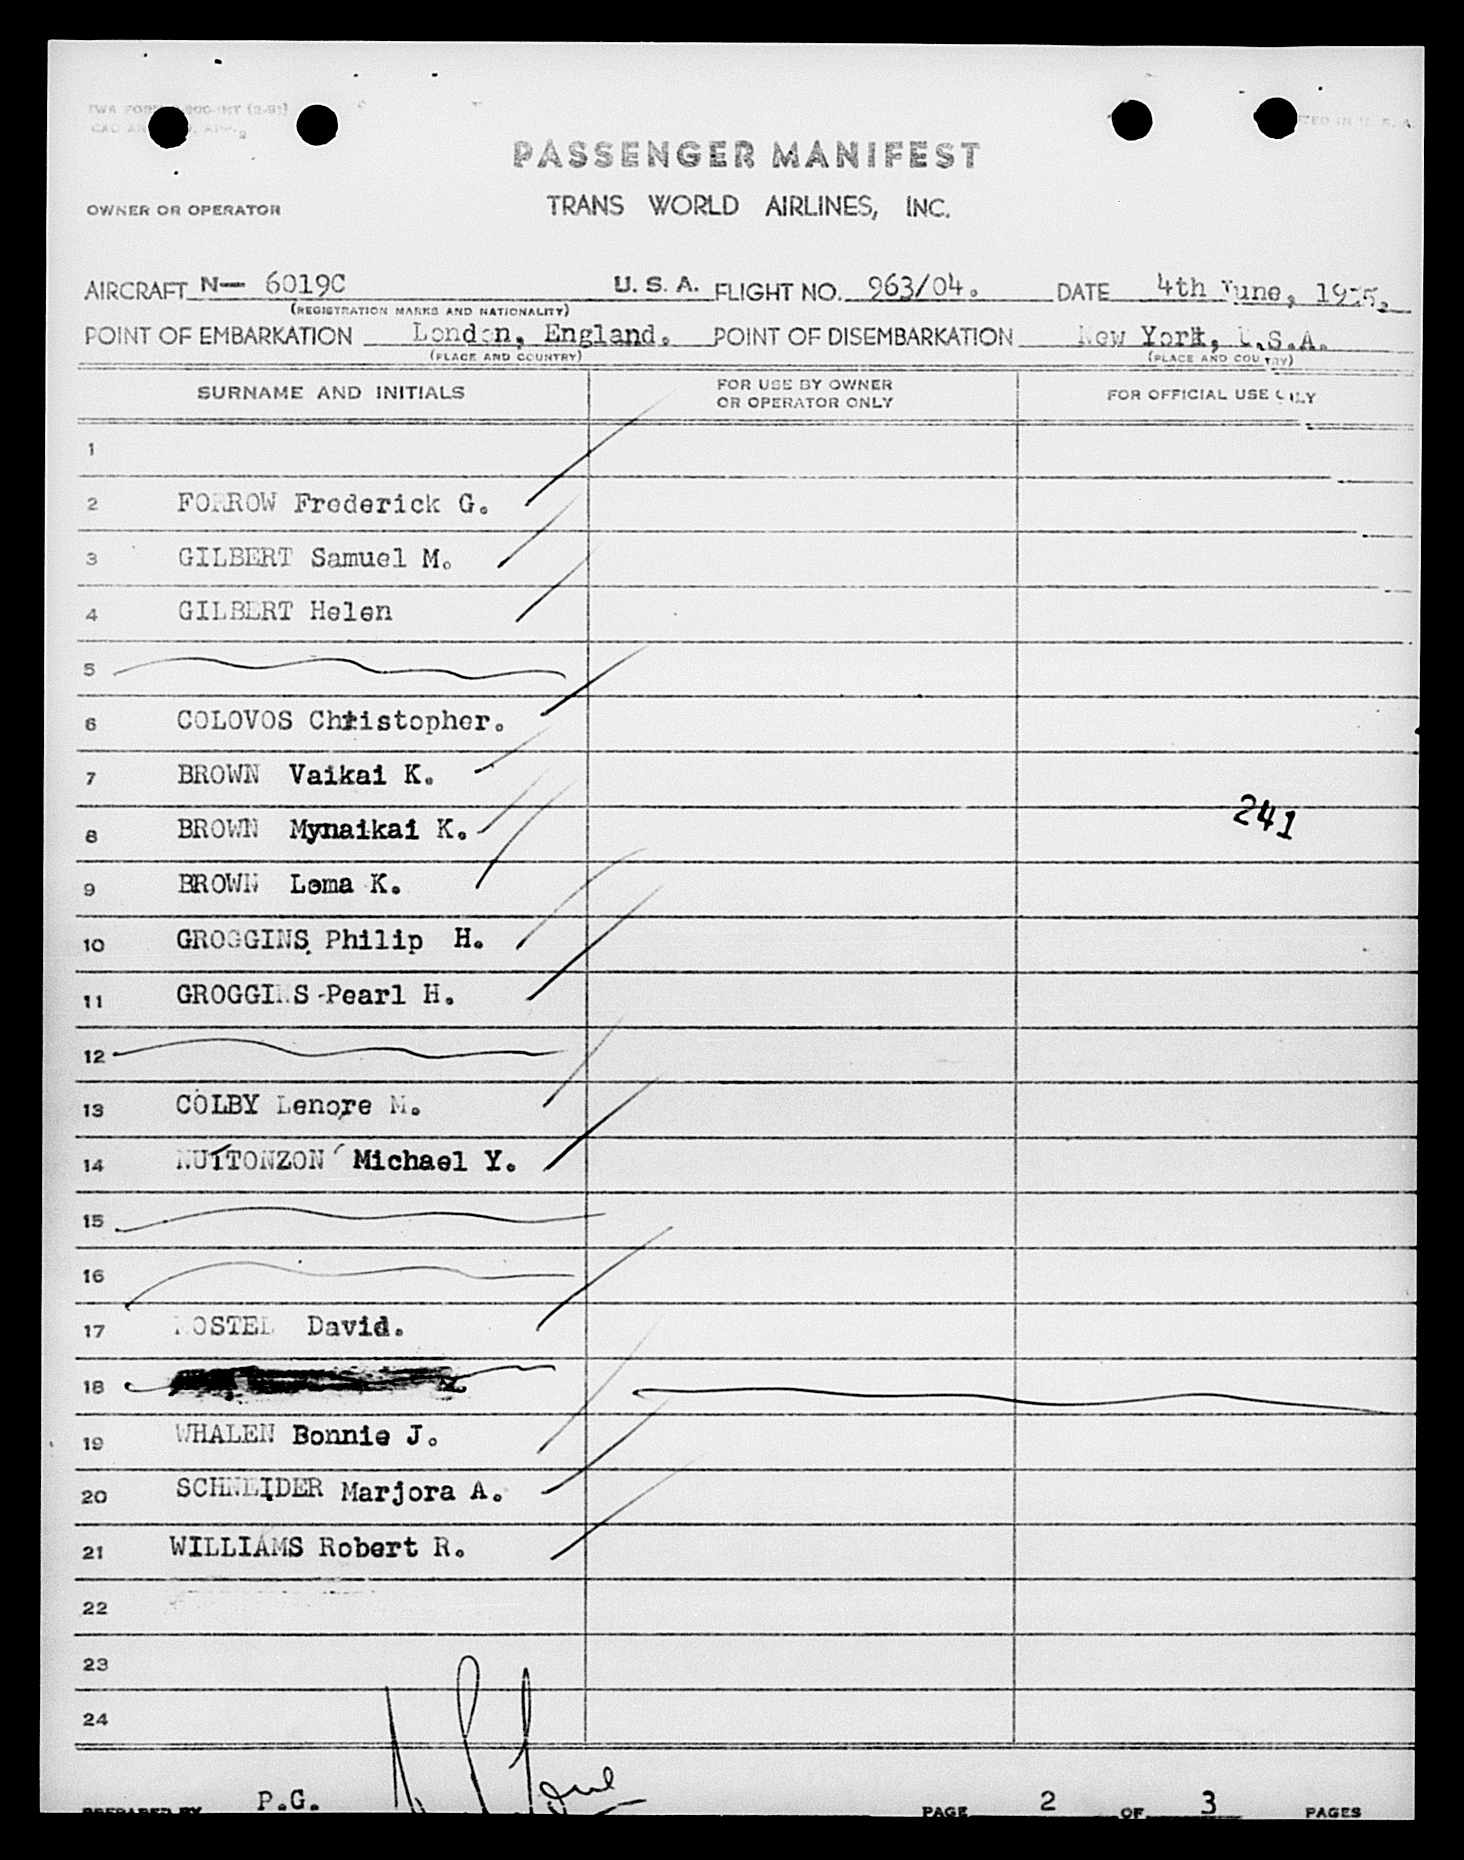 PASSENGER MANIFEST
OWNER OR OPERATOR TRANS WORLD AIRLINES, INC.
AIRCRAFT N- 6019C U. S. A. FLIGHT NO. 963/04. DATE 4th June, 1955.
(REGISTRATION MARKS AND NATIONALITY)
POINT OF EMBARKATION London, England. POINT OF DISEMBARKATION New York, U.S.A.
(PLACE AND COUNTRY) (PLACE AND COUNTRY)
SURNAME AND INITIALS FOR USE BY OWNER OR OPERATOR ONLY FOR OFFICIAL USE ONLY
1
2 FORROW Frederick G.
3 GILBERT Samuel M.
4 GILBERT Helen
5
6 COLOVOS Christopher.
7 BROWN Vaikai K.
8 BROWN Mynaikai K. 241
9 BROWN Loma K.
10 GROGGINS Philip H.
11 GROGGINS Pearl H.
12
13 COLBY Lenore M.
14 NUTTONZON Michael Y.
15
16
17 David.
18
19 WHALEN Bonnie J.
20 SCHNEIDER Marjora A.
21 WILLIAMS Robert R.
22
23
24
PREPARED BY P.G. PAGE 2 OF 3 PAGES